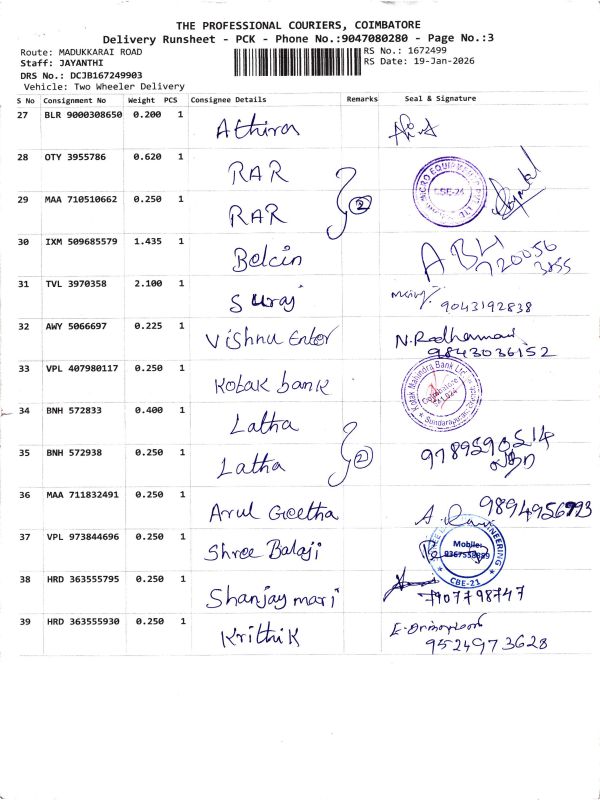 THE PROFESSIONAL COURIERS, COIMBATORE
Delivery Runsheet - PCK - Phone No.:9047080280 - Page No.:3
Route: MADUKKARAI ROAD
RS No.: 1672499
Staff: JAYANTHI
RS Date: 19-Jan-2026
DRS No.: DCJB167249903
Vehicle: Two Wheeler Delivery
S No Consignment No Weight PCS Consignee Details Remarks Seal & Signature
27 BLR 9000308650 0.200 1 Athira
28 OTY 3955786 0.620 1 RAR
29 MAA 710510662 0.250 1 RAR 2
30 IXM 509685579 1.435 1 Belcin
31 TVL 3970358 2.100 1 Suraj 9043192838
32 AWY 5066697 0.225 1 Vishnu Enter
9843036152
33 VPL 407980117 0.250 1 Kotak bank Kotak Mahindra Bank Ltd
34 BNH 572833 0.400 1 Latha
35 BNH 572938 0.250 1 Latha 2
36 MAA 711832491 0.250 1 Arul Geetha
37 VPL 973844696 0.250 1 Shree Balaji Mobile:
CBE-21
38 HRD 363555795 0.250 1 Shanjay mari
7907798747
39 HRD 363555930 0.250 1 Krithik
9524973628